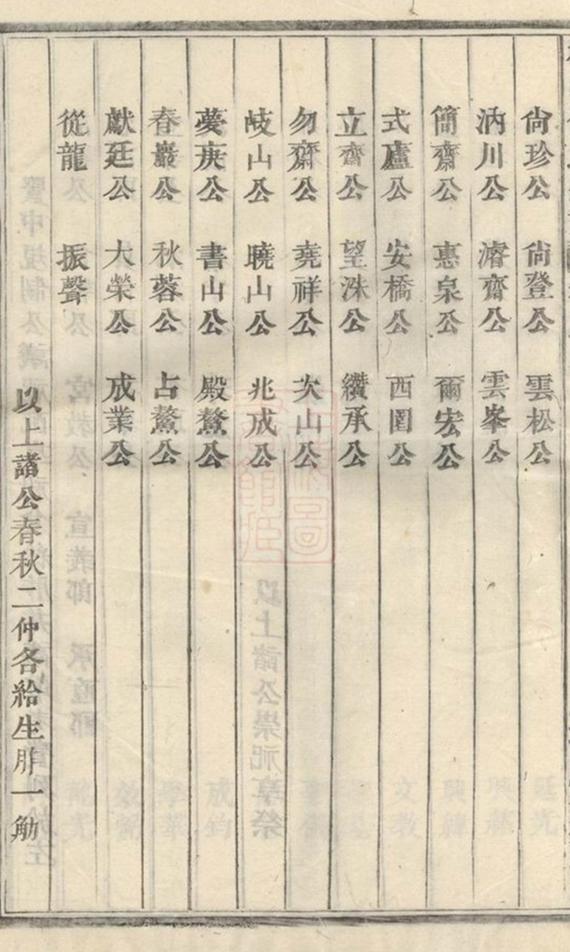 尙珍公 尙登公 雲松公
汭川公 濬齋公 雲峯公
簡齋公 惠泉公 爾宏公
式廬公 安橋公 西圃公
立齋公 望洙公 纘承公
勿齋公 堯祥公 次山公
岐山公 曉山公 兆成公
夢庚公 書山公 殿鰲公
春巖公 秋蓉公 占鰲公
獻廷公 大榮公 成業公
從龍 振聲
以上諸公春秋二仲各給生胙一觔